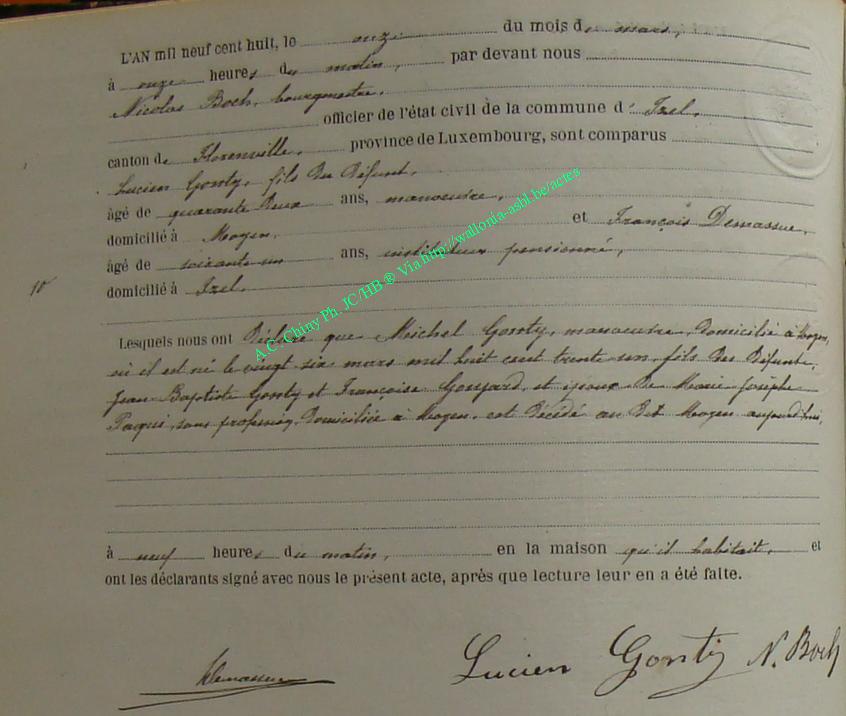 L'AN mil neuf cent huit, le onze du mois de mars,
à onze heures du matin, par devant nous
Nicolas Boch, bourgmestre,
officier de l'état civil de la commune d'Izel,
canton de Florenville, province de Luxembourg, sont comparus
Lucien Gonty, fils du défunt,
âgé de quarante deux ans, manoeuvre,
domicilié à Moyen, et François Demasseu,
âgé de soixante-un ans, instituteur pensionné,
10
domicilié à Izel.
Lesquels nous ont déclaré que Michel Gonty, manoeuvre, domicilié à Moyen,
où il est né le vingt six mars mil huit cent trente un, fils des défunts,
Jean Baptiste Gonty et Françoise et époux de Marie Josèphe
Paqui, sans profession, domiciliée à Moyen, est décédé au dit Moyen aujourd'hui,
à neuf heures du matin, en la maison qu'il habitait, et
ont les déclarants signé avec nous le présent acte, après que lecture leur en a été faite.
Lucien Gonty N. Boch
A.C. Chiny Ph. JC/HB ® Via http://wallonia-asbl.be/actes